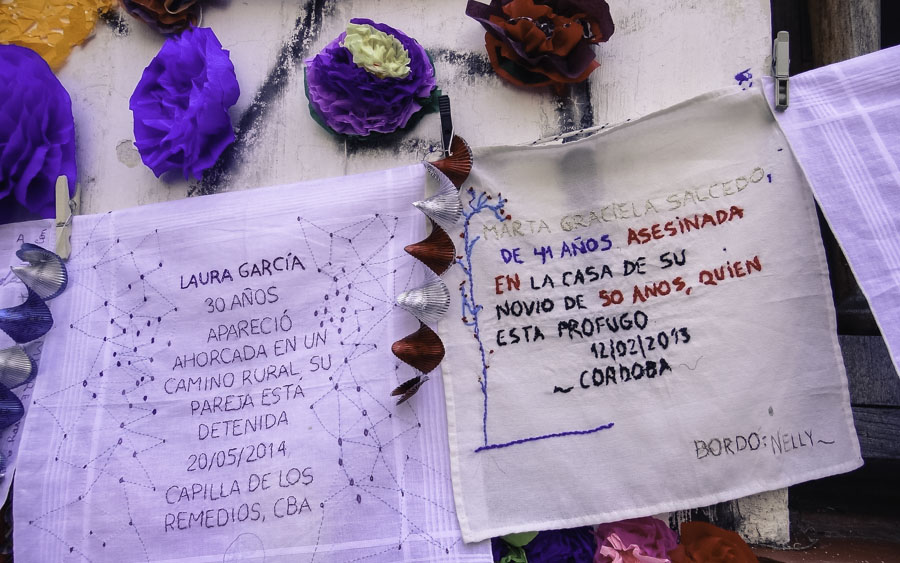 LAURA GARCÍA
30 AÑOS
APARECIÓ
AHORCADA EN UN
CAMINO RURAL, SU
PAREJA ESTÁ
DETENIDA
20/05/2014
CAPILLA DE LOS
REMEDIOS, CBA
MARTA GRACIELA SALCEDO,
DE 41 AÑOS ASESINADA
EN LA CASA DE SU
NOVIO DE 50 AÑOS, QUIEN
ESTA PROFUGO
12/02/2013
~ CORDOBA
BORDÓ: NELLY~